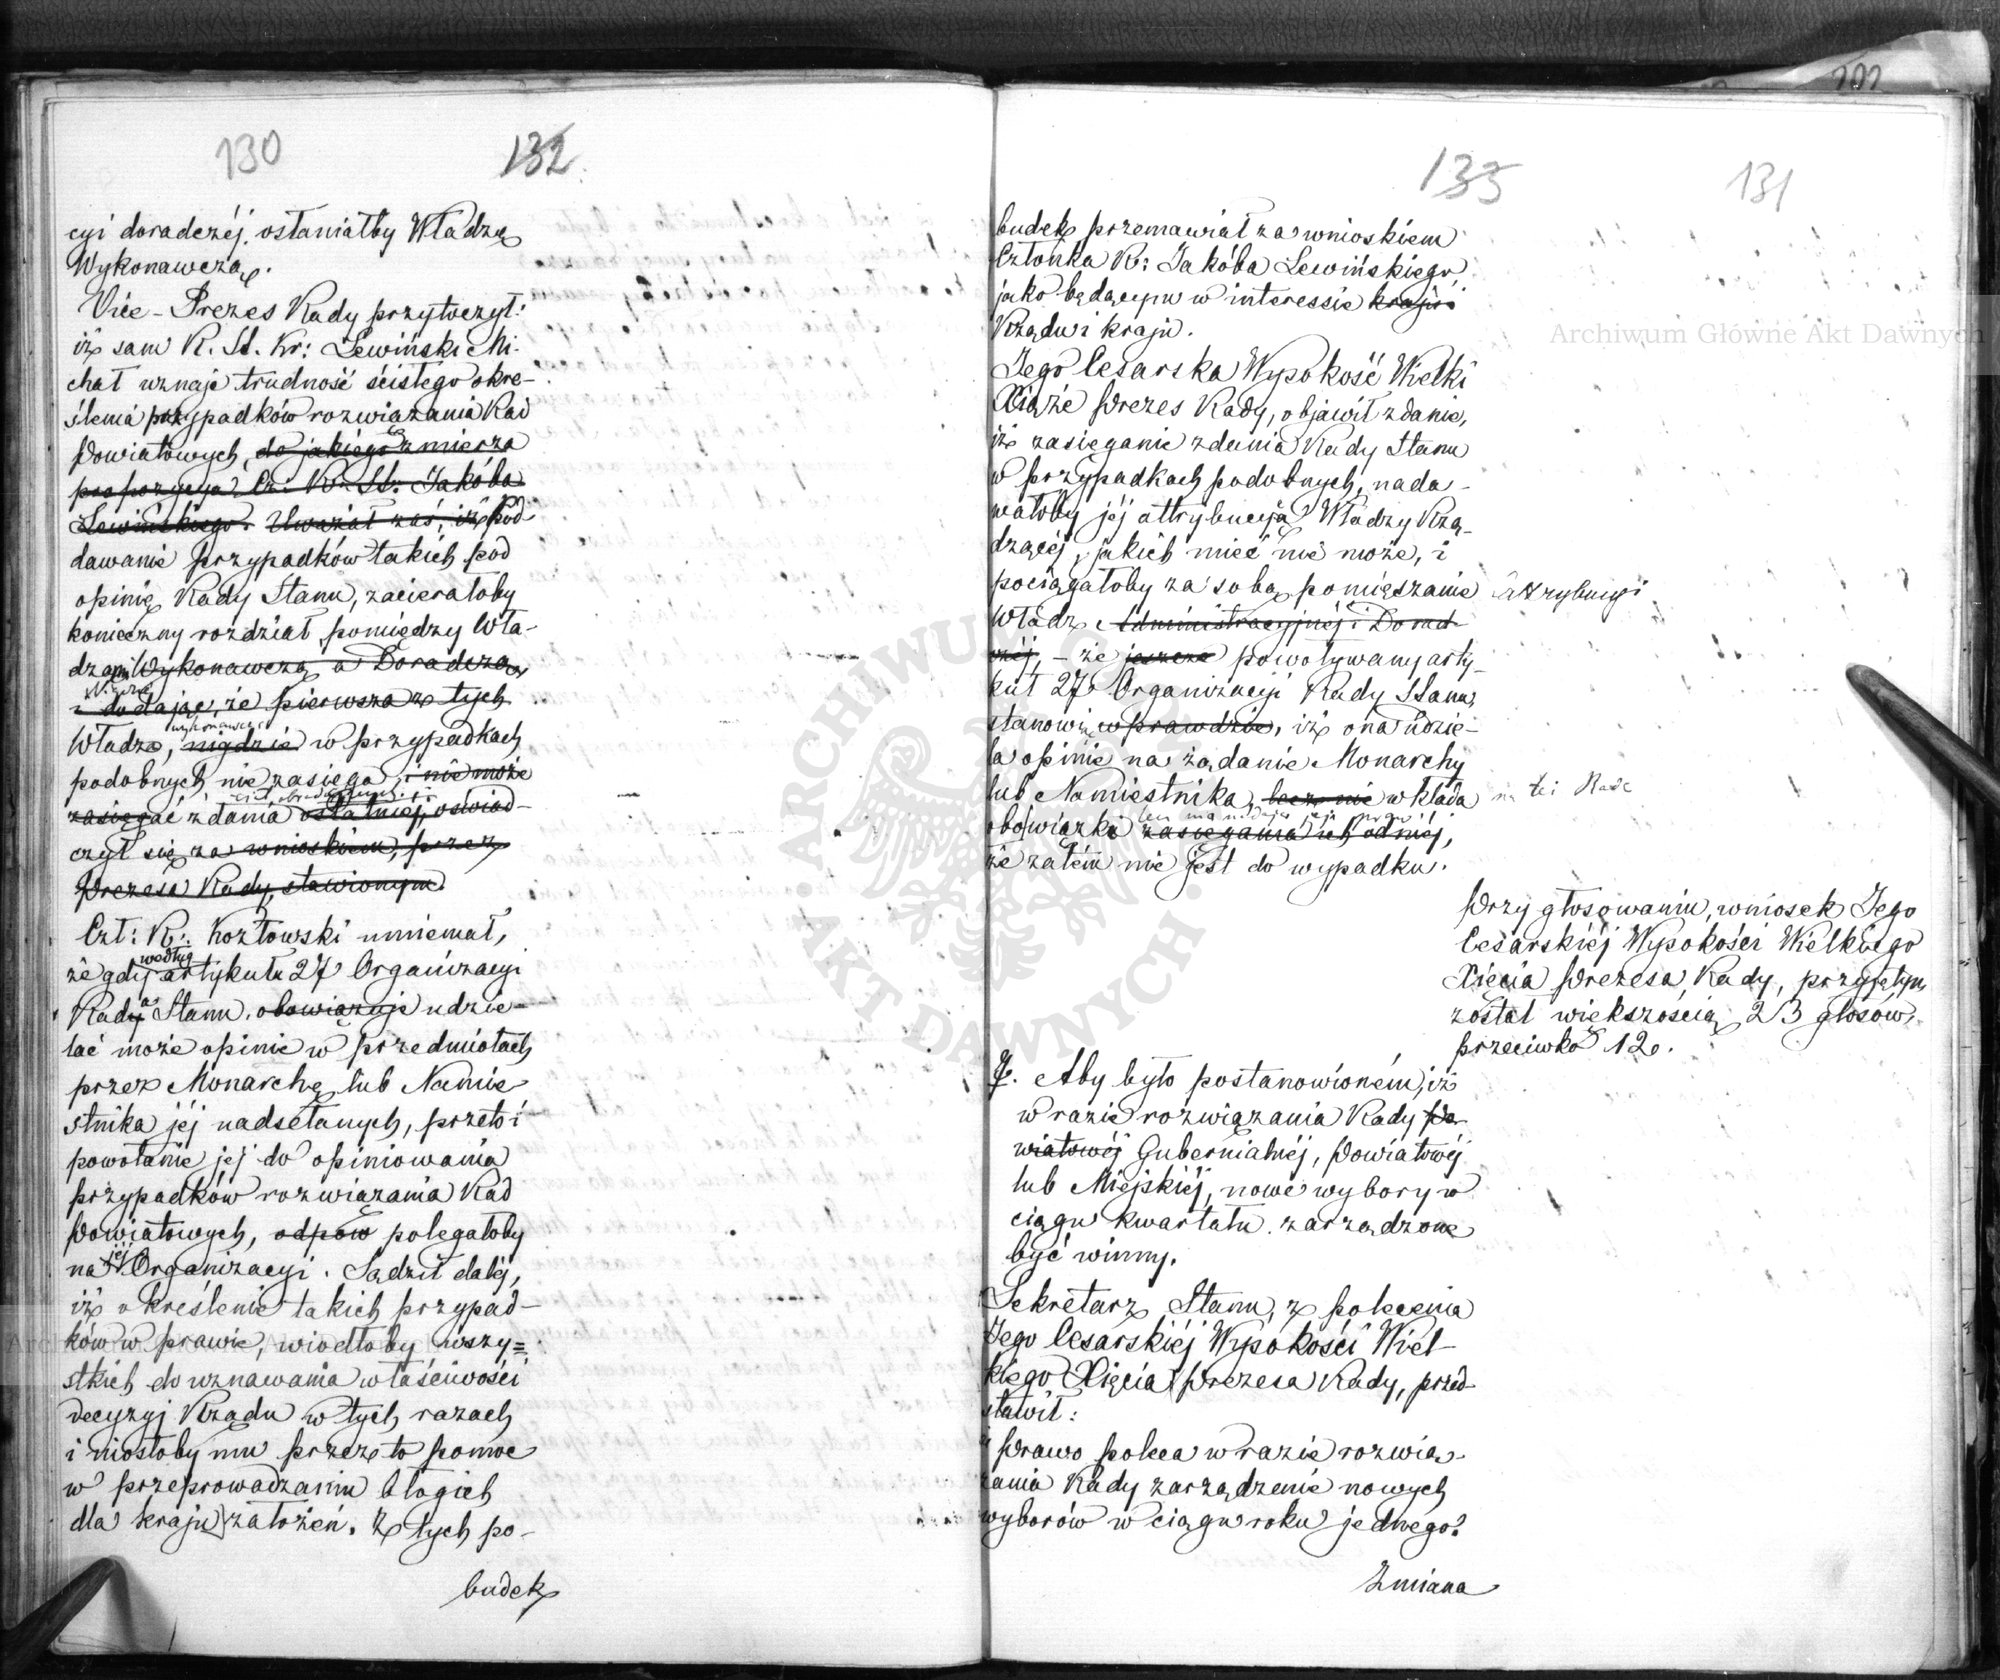 130 132
cyi doradczéj, osłaniałby Władzę
Wykonawczą.
Vice-Prezes Rady przytoczył:
iż sam R. St. Kr: Lewiński Mi-
chał uznaje trudność ścisłego okre-
ślenia przypadków rozwiązania Rad
Powiatowych, do jakiego zmierza
propozycya Cz: R. St: Jakóba
Lewińskiego. Uważał zaś, iż pod-
dawanie przypadków takich pod
opinię Rady Stanu, zacierałoby
konieczny rozdział pomiędzy Wła-
dzami Wykonawczą a Doradczą,
i dodając, że pierwsza z tych
wykonawcza
Władz, nigdzie w przypadkach
podobnych nie zasięga, i nie może
zasięgać zdania ostatniej, oświad-
czył się za wnioskiem, przez
Prezesa Rady, stawionym.
Czł: R: Kozłowski mniemał,
według
że gdy artykułu 27 Organizacyi
a
Rady Stanu, obowiązuje udzie-
lać może opinie w przedmiotach
przez Monarchę lub Namie-
stnika jéj nadsełanych, przeto i
powołanie jej do opiniowania
przypadków rozwiązania Rad
Powiatowych, odpow polegałoby
jéj
na Organizacyi. Sądził daléj,
iż określenie takich przypad-
ków w prawie, wiodłoby wszy=
stkich do uznawania właściwości
decyzyj Rządu w tych razach
i niosłoby mu przez to pomoc
w przeprowadzaniu błogich
dla kraju założeń. Z tych po-
budek
133 131
budek przemawiał za wnioskiem
Członka R: Jakóba Lewińskiego
jako będącym w interessie kraju i
Rządu i kraju.
Jego Cesarska Wysokość Wielki
Xiąże Prezes Rady, objawił zdanie,
iż zasięganie zdania Rady Stanu
w przypadkach podobnych, nada-
wałoby jéj attrybucyą Władzy Rzą-
dzącéj, jakich mieć nie może, i
pociągałoby za sobą pomięszanie attrybucyi
Władz Administracyjnéj i Dorad-
czéj, - że jeszcze powoływany arty-
kuł 27 Organizacyi Rady Stanu,
stanowi w prawdzie, iż ona udzie-
la opinie na żądanie Monarchy
lub Namiestnika, lecz nie wkłada na tę Radę
obowiązku zasięgania ich od niéj,
że zatém nie jest do wypadku.
Przy głosowaniu, wniosek Jego
Cesarskiéj Wysokości Wielkiego
Xięcia Prezesa Rady, przyjętym
został większością 23 głosów,
przeciwko 12.
Aby było postanowioném, iż
w razie rozwiązania Rady Po-
wiatowéj Gubernialnéj, Powiatowéj
lub Miejskiéj, nowe wybory w
ciągu kwartału zarządzone
być winny.
Sekretarz Stanu, z polecenia
Jego Cesarskiéj Wysokości Wiel-
kiego Xięcia Prezesa Rady, przed-
stawił:
Prawo poleca w razie rozwią-
zania Rady zarządzenie nowych
wyborów w ciągu roku jednego.
Zmiana
202
Archiwum Główne Akt Dawnych
ARCHIWUM GŁÓWNE AKT DAWNYCH